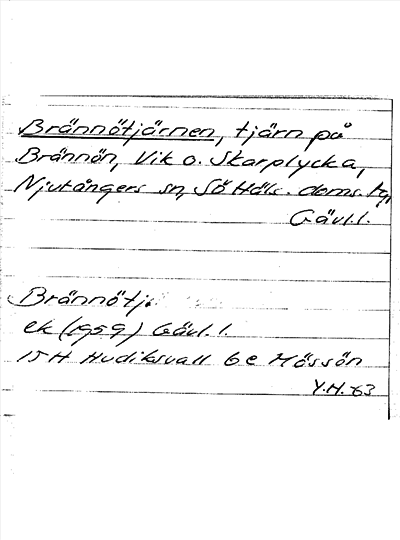 Brännötjärnen, tjärn på
Brännön, Vik o. Skarplycka,
Njutångers sn, Sö Häls. doms. tg,
Gävl.l.
Brännötj.
ek (1959) Gävl.l.
15H Hudiksvall 6e Mössön
Y.H.-63